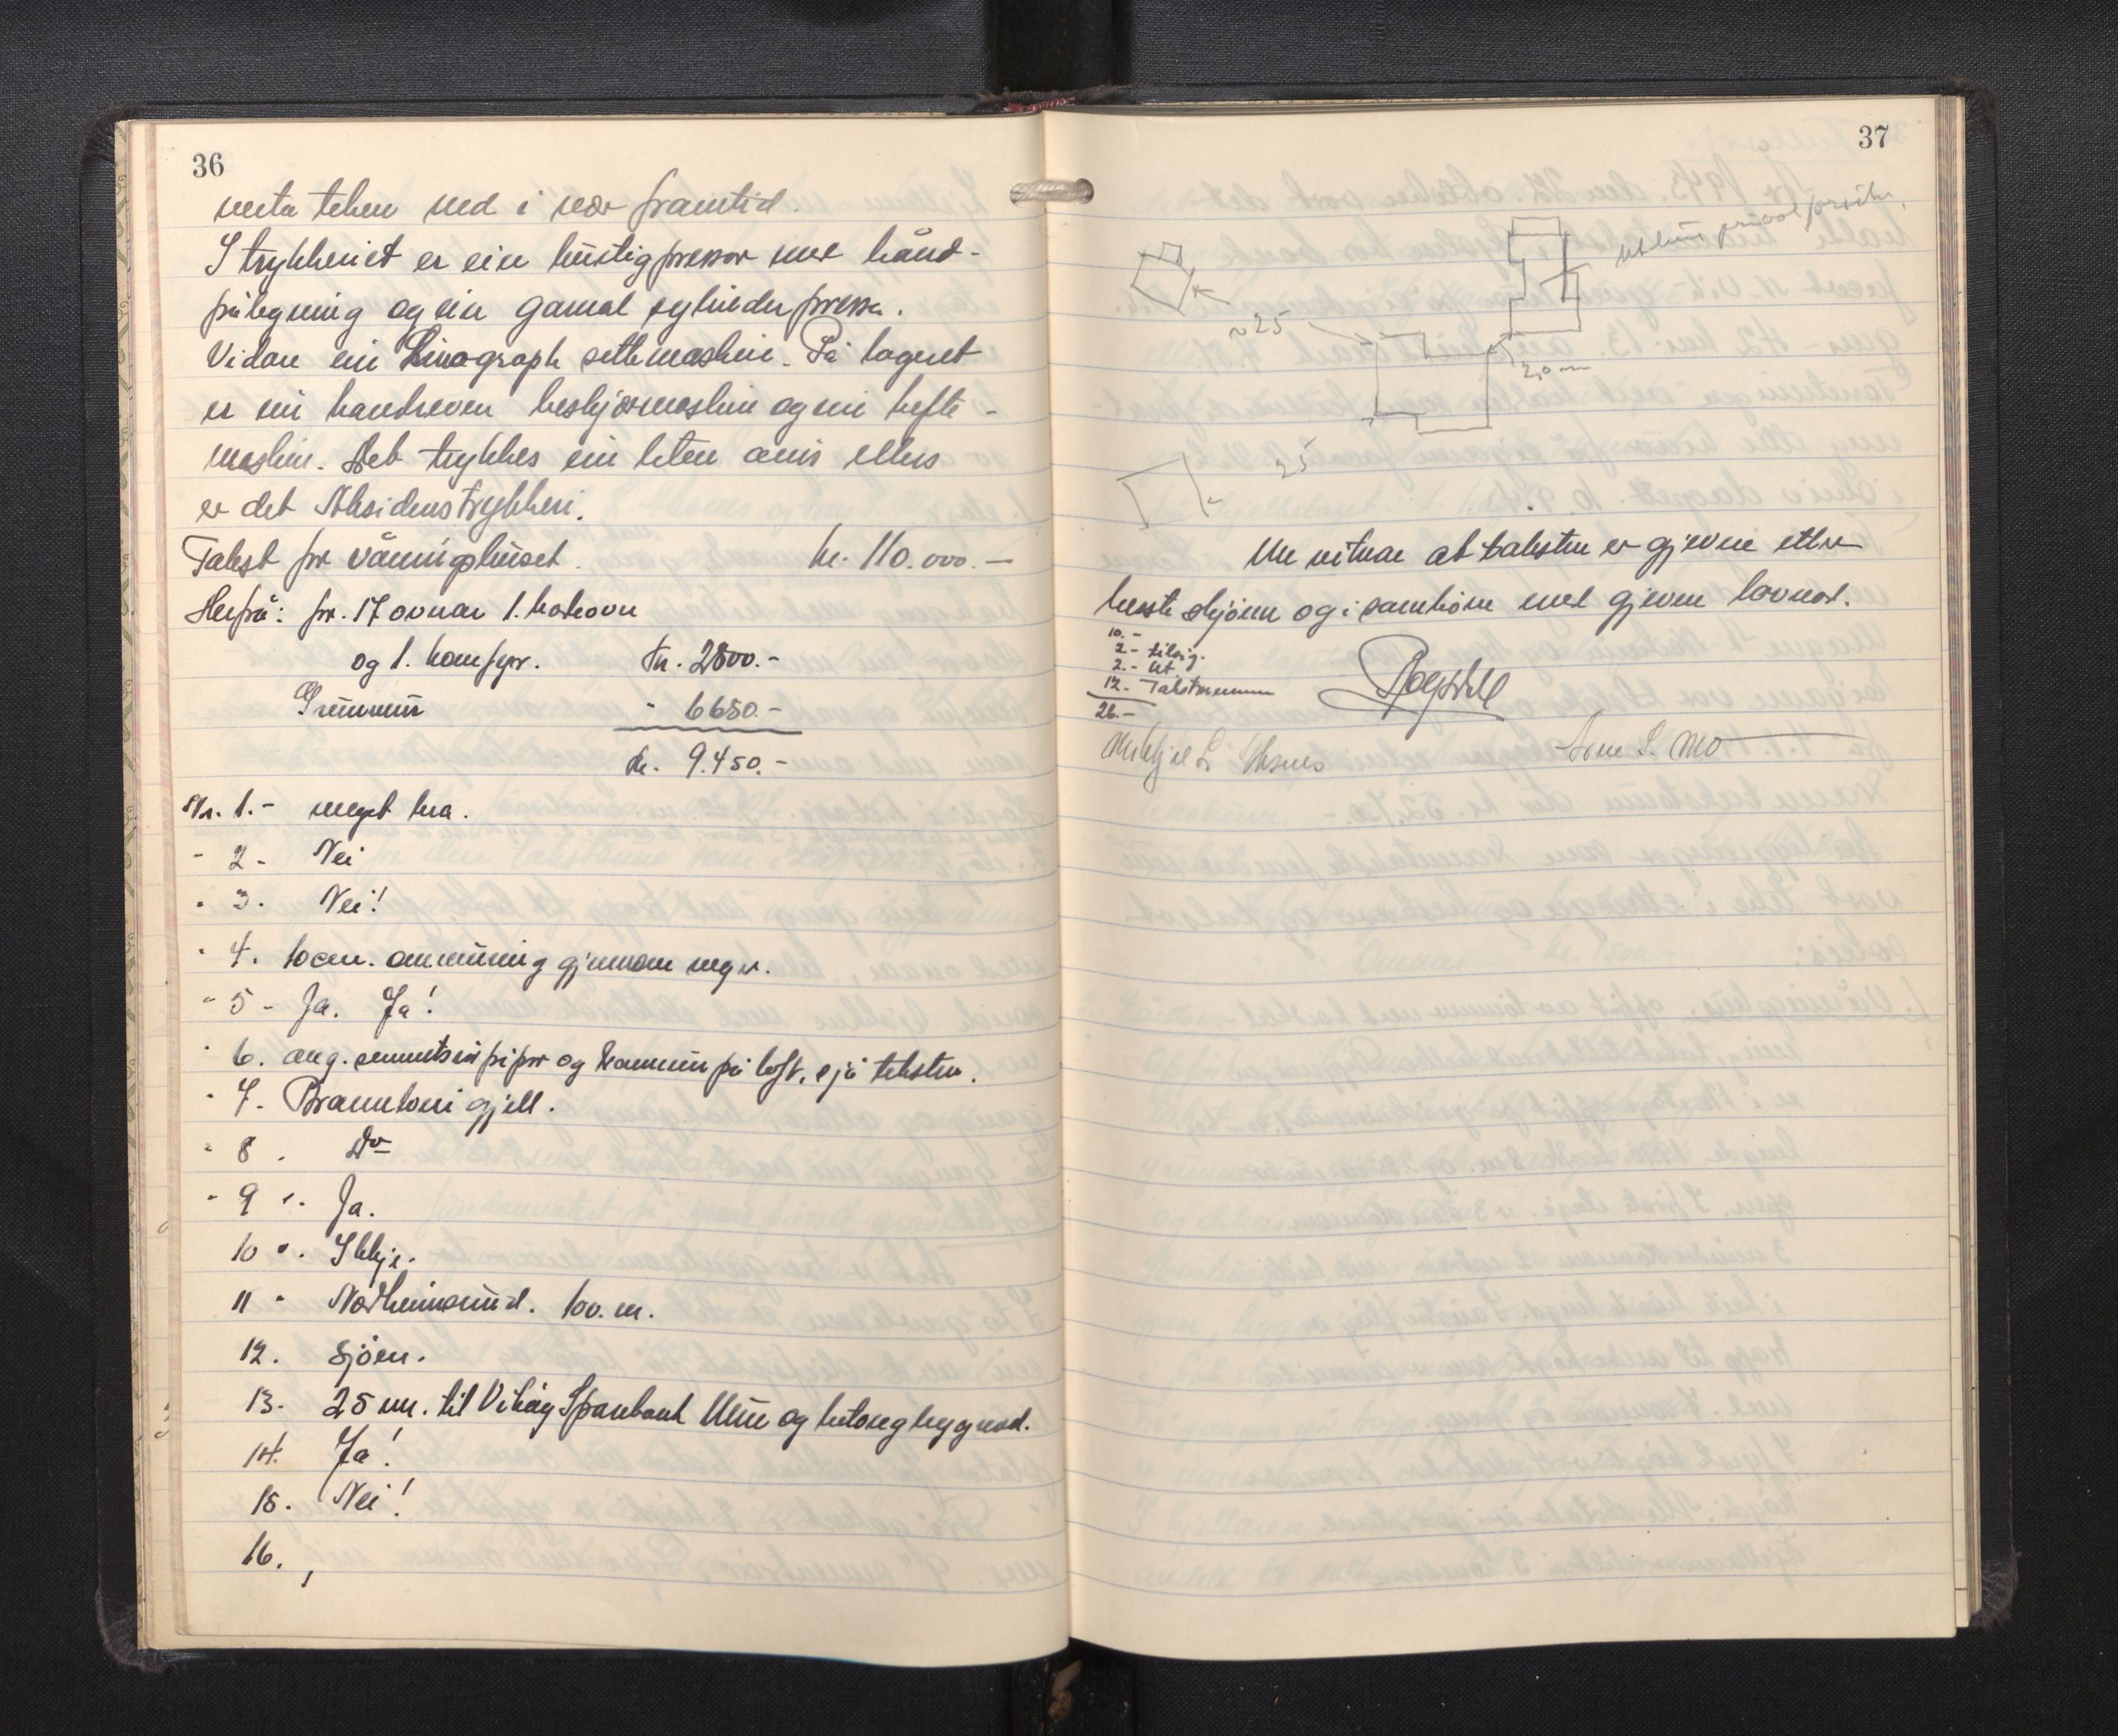 36
verta teken ned i nær framtid.
I trykkeriet er ein hurtigpressor med hånd-
pålegning og ein gamal sylinderpresse.
Vidare ein Linograph settemaskin. På lageret
er ein handreven beskjærmaskin og ein hefte-
maskin. Det trykkes ein liten avis elles
er det Aksidenstrykkeri.
Takst for våningshuset. kr. 110.000.-
Herfrå: for. 17 ovnar 1. kakovn
og 1. komfyr. kr. 2800.-
Grunnmur " 6650.-
kr. 9.450.-
Nr. 1.- meget bra.
" 2- Nei
" 3. Nei!
" 4. 10 cm. ommuring gjennom vegg.
" 5- Ja. Ja!
" 6. ang. sementrør piper og kammer på loft, sjå teksten.
" 7. Brannloven gjeld.
" 8. Do
" 9 ". Ja.
10 ". Ikkje.
11 " Nordheimsund. 100. m.
12. Sjøen.
13. 25 m. til Vikøy Sparebank Mur og betongbygnad.
14. Ja!
15. Nei!
16.
37
uthus
~25
20 m
25
Me vitnar at taksten er gjeven etter
beste skjønn og i samhøve med gjeven lovnad.
10.-
2- tilsig.
2.- Ut.
12.- Takstmenn
26.-
Arne S. Mo